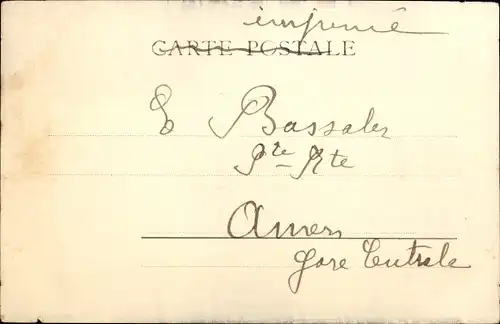 imprimé
CARTE POSTALE
E Bassaler
Pte Rte
Anvers
Gare Centrale